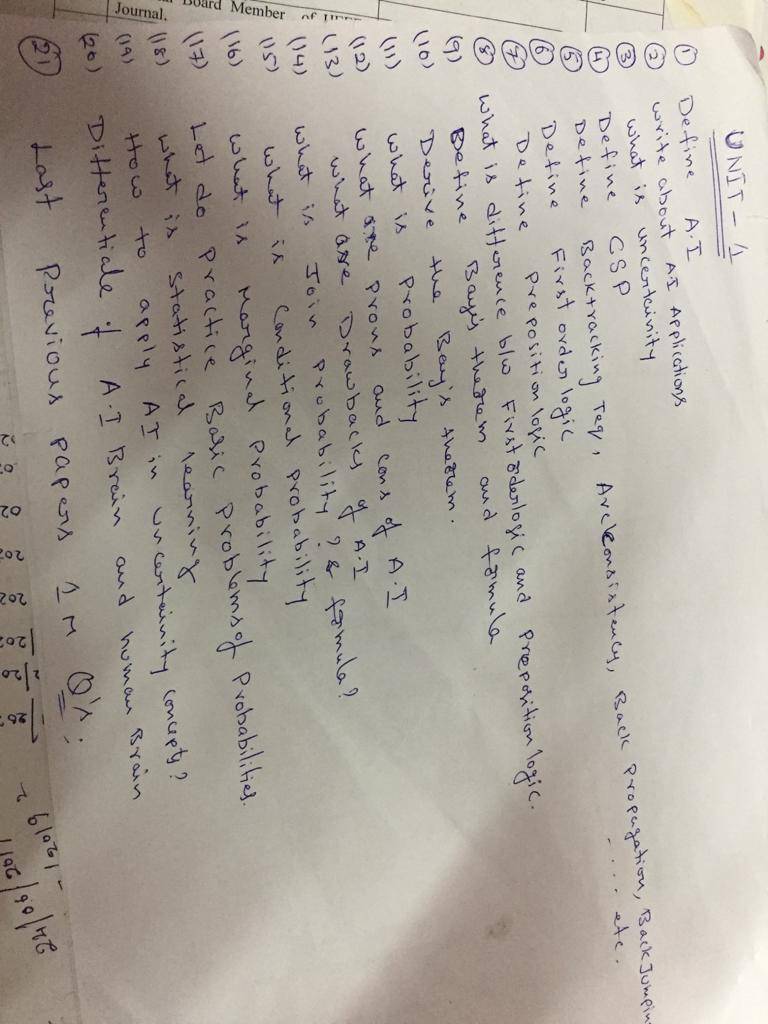 Board Member
Journal.
UNIT - 1
① Define A.I
② write about AI Applications
③ what is uncertainity
④ Define CSP
⑤ Define Backtracking Teq, Arc Consistency, Back propagation, BackJumpin
..... etc.
⑥ Define First order logic
⑦ Define preposition logic
⑧ what is difference b/w First oderlogic and preposition logic.
(9) Define Bay's theorem and formula
(10) Derive the Bay's theorem.
(11) what is probability
(12) what are prons and cons of A.I
(13) what are Drawbacks of A.I
(14) what is Join probability, & formula?
(15) what is Conditional probability
(16) what is Marginal probability
(17) Let do practice Basic problems of probabilities.
(18) what is statistical learning
(19) How to apply AI in uncertainity concepts?
(20) Differentiate of A.I Brain and human Brain
(21) Last previous papers 1M Q's.